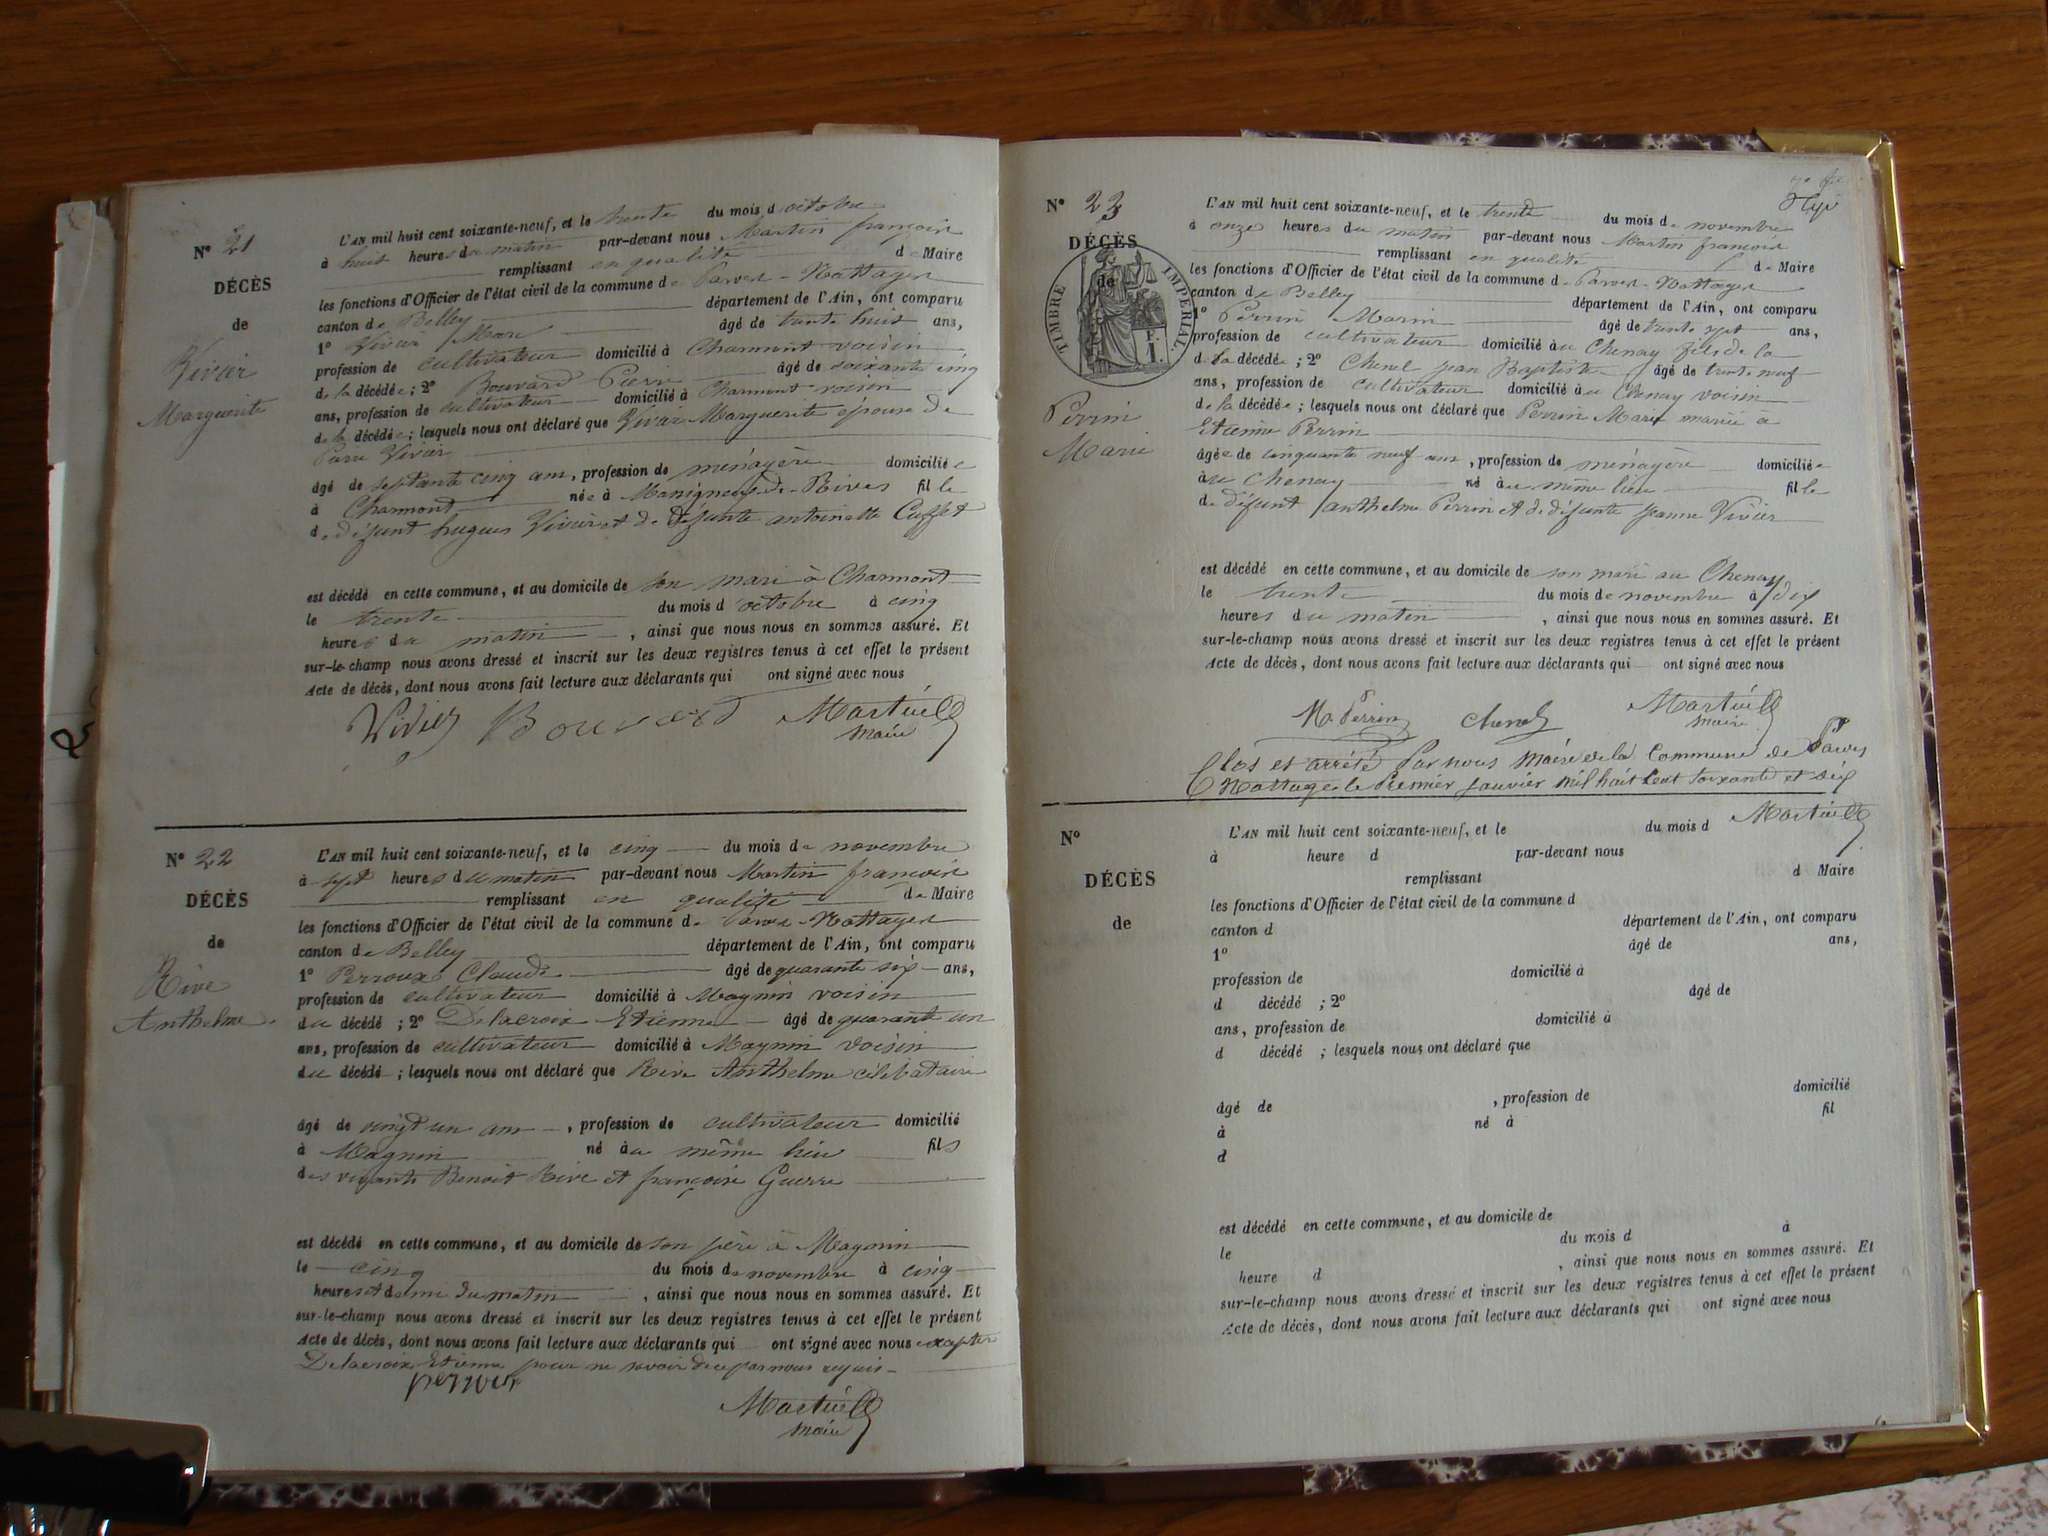 N° 21
DÉCÈS
de
Vivier
Marguerite
L'AN mil huit cent soixante-neuf, et le trente du mois d'octobre
à huit heures du matin par-devant nous Martin françois
remplissant en qualité de Maire
les fonctions d'Officier de l'état civil de la commune de Parves-Nattages
canton de Belley département de l'Ain, ont comparu
1° Vivier Marc âgé de trente huit ans,
profession de cultivateur domicilié à Charmont voisin
de la décédée; 2° Bouvard Pierre âgé de soixante cinq
ans, profession de cultivateur domicilié à Charmont voisin
de la décédée; lesquels nous ont déclaré que Vivier Marguerite épouse de
Pierre Vivier
âgé de septante cinq ans, profession de ménagère domiciliée
à Charmont née à de Rives fille
de défunt hugues Vivier et de défunte antoinette Cuffet
est décédé en cette commune, et au domicile de son mari à Charmont
le trente du mois d'octobre à cinq
heures du matin, ainsi que nous nous en sommes assuré. Et
sur-le-champ nous avons dressé et inscrit sur les deux registres tenus à cet effet le présent
Acte de décès, dont nous avons fait lecture aux déclarants qui ont signé avec nous
Vivier Bouvard Martin
maire
N° 22
DÉCÈS
de
Rive
Anthelme.
L'AN mil huit cent soixante-neuf, et le cinq du mois de novembre
à sept heures du matin par-devant nous Martin françois
remplissant en qualité de Maire
les fonctions d'Officier de l'état civil de la commune de Parves-Nattages
canton de Belley département de l'Ain, ont comparu
1° Perroux Claude âgé de quarante six ans,
profession de cultivateur domicilié à Magnin voisin
du décédé; 2° Delacroix Etienne âgé de quarante un
ans, profession de cultivateur domicilié à Magnin voisin
du décédé; lesquels nous ont déclaré que Rive Anthelme célibataire
âgé de vingt un ans, profession de cultivateur domicilié
à Magnin né au même lieu fils
des vivants Benoit Rive et françoise Guerre
est décédé en cette commune, et au domicile de son père à Magnin
le cinq du mois de novembre à cinq
heures et demi du matin, ainsi que nous nous en sommes assuré. Et
sur-le-champ nous avons dressé et inscrit sur les deux registres tenus à cet effet le présent
Acte de décès, dont nous avons fait lecture aux déclarants qui ont signé avec nous excepter
Delacroix Etienne pour ne savoir de ce par nous requis
perroux
Martin
maire
N° 23
DÉCÈS
de
TIMBRE IMPERIAL
F.
1.
Perrin
Marie
L'AN mil huit cent soixante-neuf, et le trente du mois de novembre
à onze heures du matin par-devant nous Martin françois
remplissant en qualité de Maire
les fonctions d'Officier de l'état civil de la commune de Parves-Nattages
canton de Belley département de l'Ain, ont comparu
1° Perrin Marin âgé de trente sept ans,
profession de cultivateur domicilié au Chenay fils de la
de la décédée; 2° Chenel jean Baptiste âgé de trente neuf
ans, profession de cultivateur domicilié au Chenay voisin
de la décédée; lesquels nous ont déclaré que Perrin Marie mariée à
Etienne Perrin
âgée de cinquante neuf ans, profession de ménagère domiciliée
au Chenay né au même lieu fille
de défunt anthelme Perrin et de défunte jeanne Vivier
est décédé en cette commune, et au domicile de son mari au Chenay
le trente du mois de novembre à dix
heures du matin, ainsi que nous nous en sommes assuré. Et
sur-le-champ nous avons dressé et inscrit sur les deux registres tenus à cet effet le présent
Acte de décès, dont nous avons fait lecture aux déclarants qui ont signé avec nous
M. Perrin Chenel Martin
maire
Clos et arrêté Par nous Maire de la Commune de Parves
Nattages le Premier janvier mil huit cent soixante et dix
Martin
N°
DÉCÈS
de
L'AN mil huit cent soixante-neuf, et le du mois d
à heure d par-devant nous
remplissant d Maire
les fonctions d'Officier de l'état civil de la commune d
canton d département de l'Ain, ont comparu
1° âgé de ans,
profession de domicilié à
d décédé ; 2° âgé de
ans, profession de domicilié à
d décédé ; lesquels nous ont déclaré que
âgé de , profession de domicilié
à né à fil
d
est décédé en cette commune, et au domicile de
le du mois d à
heure d , ainsi que nous nous en sommes assuré. Et
sur-le-champ nous avons dressé et inscrit sur les deux registres tenus à cet effet le présent
Acte de décès, dont nous avons fait lecture aux déclarants qui ont signé avec nous